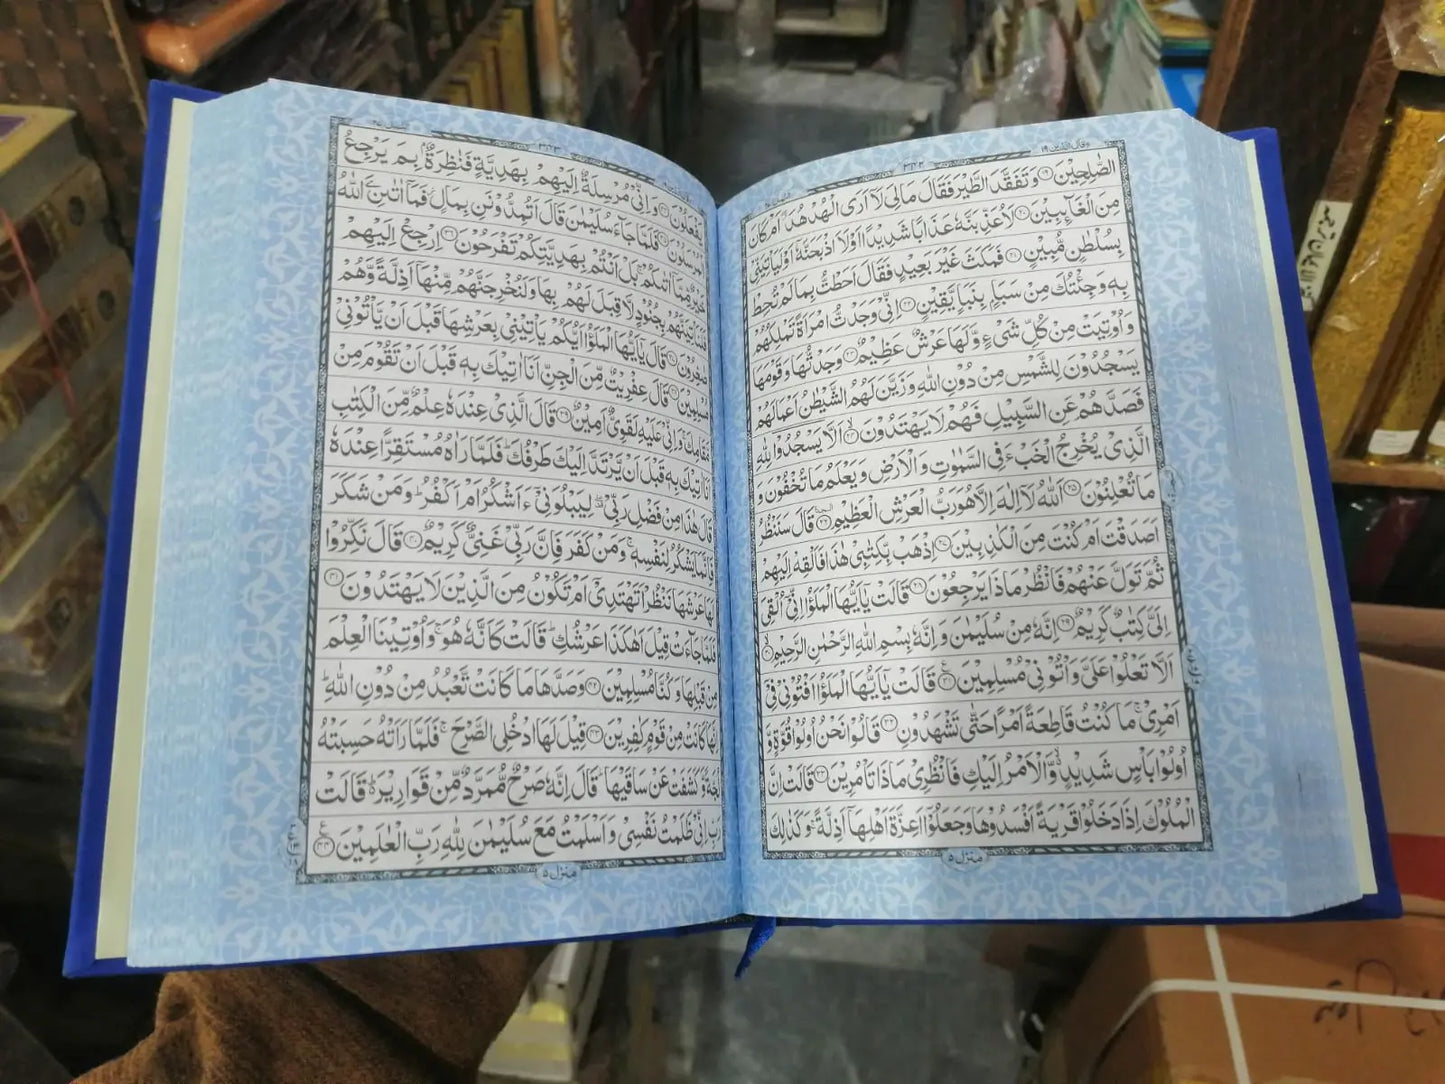 وقال الذین ۱۹
الصّٰلِحِیْنَ ﴿۱۹﴾ وَتَفَقَّدَ الطَّیْرَ فَقَالَ مَالِیَ لَاۤ اَرَی الْهُدْهُدَ ۖ اَمْ كَانَ
مِنَ الْغَآئِبِیْنَ ﴿۲۰﴾ لَاُعَذِّبَنَّهٗ عَذَابًا شَدِیْدًا اَوْ لَاۡاَذْبَحَنَّهٗۤ اَوْ لَیَاْتِیَنِّیْ
بِسُلْطٰنٍ مُّبِیْنٍ ﴿۲۱﴾ فَمَكَثَ غَیْرَ بَعِیْدٍ فَقَالَ اَحَطْتُّ بِمَا لَمْ تُحِطْ
بِهٖ وَجِئْتُكَ مِنْ سَبَاٍۭ بِنَبَاٍ یَّقِیْنٍ ﴿۲۲﴾ اِنِّیْ وَجَدْتُّ امْرَاَةً تَمْلِكُهُمْ
وَاُوْتِیَتْ مِنْ كُلِّ شَیْءٍ وَّلَهَا عَرْشٌ عَظِیْمٌ ﴿۲۳﴾ وَجَدْتُّهَا وَقَوْمَهَا
یَسْجُدُوْنَ لِلشَّمْسِ مِنْ دُوْنِ اللّٰهِ وَزَیَّنَ لَهُمُ الشَّیْطٰنُ اَعْمَالَهُمْ
فَصَدَّهُمْ عَنِ السَّبِیْلِ فَهُمْ لَا یَهْتَدُوْنَ ﴿۲۴﴾ اَلَّا یَسْجُدُوْا لِلّٰهِ
الَّذِیْ یُخْرِجُ الْخَبْءَ فِی السَّمٰوٰتِ وَالْاَرْضِ وَیَعْلَمُ مَا تُخْفُوْنَ وَ
مَا تُعْلِنُوْنَ ﴿۲۵﴾ اَللّٰهُ لَاۤ اِلٰهَ اِلَّا هُوَ رَبُّ الْعَرْشِ الْعَظِیْمِ ﴿۲۶﴾ قَالَ سَنَنْظُرُ
اَصَدَقْتَ اَمْ كُنْتَ مِنَ الْكٰذِبِیْنَ ﴿۲۷﴾ اِذْهَبْ بِّكِتٰبِیْ هٰذَا فَاَلْقِهْ اِلَیْهِمْ
ثُمَّ تَوَلَّ عَنْهُمْ فَانْظُرْ مَاذَا یَرْجِعُوْنَ ﴿۲۸﴾ قَالَتْ یٰۤاَیُّهَا الْمَلَؤُا اِنِّیْۤ اُلْقِیَ
اِلَیَّ كِتٰبٌ كَرِیْمٌ ﴿۲۹﴾ اِنَّهٗ مِنْ سُلَیْمٰنَ وَاِنَّهٗ بِسْمِ اللّٰهِ الرَّحْمٰنِ الرَّحِیْمِ ﴿۳۰﴾
اَلَّا تَعْلُوْا عَلَیَّ وَاْتُوْنِیْ مُسْلِمِیْنَ ﴿۳۱﴾ قَالَتْ یٰۤاَیُّهَا الْمَلَؤُا اَفْتُوْنِیْ فِیْۤ
اَمْرِیْ ۚ مَا كُنْتُ قَاطِعَةً اَمْرًا حَتّٰی تَشْهَدُوْنِ ﴿۳۲﴾ قَالُوْا نَحْنُ اُولُوْا قُوَّةٍ وَّ
اُولُوْا بَاْسٍ شَدِیْدٍ ۙ وَّالْاَمْرُ اِلَیْكِ فَانْظُرِیْ مَاذَا تَاْمُرِیْنَ ﴿۳۳﴾ قَالَتْ اِنَّ
الْمُلُوْكَ اِذَا دَخَلُوْا قَرْیَةً اَفْسَدُوْهَا وَجَعَلُوْۤا اَعِزَّةَ اَهْلِهَاۤ اَذِلَّةً ۚ وَكَذٰلِكَ
منزل ۵
یَفْعَلُوْنَ ﴿۳۴﴾ وَاِنِّیْ مُرْسِلَةٌ اِلَیْهِمْ بِهَدِیَّةٍ فَنٰظِرَةٌۢ بِمَ یَرْجِعُ
الْمُرْسَلُوْنَ ﴿۳۵﴾ فَلَمَّا جَآءَ سُلَیْمٰنَ قَالَ اَتُمِدُّوْنَنِ بِمَالٍ ؗ فَمَاۤ اٰتٰىنَِۧ اللّٰهُ
خَیْرٌ مِّمَّاۤ اٰتٰىكُمْ ۚ بَلْ اَنْتُمْ بِهَدِیَّتِكُمْ تَفْرَحُوْنَ ﴿۳۶﴾ اِرْجِعْ اِلَیْهِمْ
فَلَنَاْتِیَنَّهُمْ بِجُنُوْدٍ لَّا قِبَلَ لَهُمْ بِهَا وَلَنُخْرِجَنَّهُمْ مِّنْهَاۤ اَذِلَّةً وَّهُمْ
صٰغِرُوْنَ ﴿۳۷﴾ قَالَ یٰۤاَیُّهَا الْمَلَؤُا اَیُّكُمْ یَاْتِیْنِیْ بِعَرْشِهَا قَبْلَ اَنْ یَّاْتُوْنِیْ
مُسْلِمِیْنَ ﴿۳۸﴾ قَالَ عِفْرِیْتٌ مِّنَ الْجِنِّ اَنَا اٰتِیْكَ بِهٖ قَبْلَ اَنْ تَقُوْمَ مِنْ
مَّقَامِكَ ۚ وَاِنِّیْ عَلَیْهِ لَقَوِیٌّ اَمِیْنٌ ﴿۳۹﴾ قَالَ الَّذِیْ عِنْدَهٗ عِلْمٌ مِّنَ الْكِتٰبِ
اَنَا اٰتِیْكَ بِهٖ قَبْلَ اَنْ یَّرْتَدَّ اِلَیْكَ طَرْفُكَ ؕ فَلَمَّا رَاٰهُ مُسْتَقِرًّا عِنْدَهٗ
قَالَ هٰذَا مِنْ فَضْلِ رَبِّیْ ۖ لِیَبْلُوَنِیْۤ ءَاَشْكُرُ اَمْ اَكْفُرُ ؕ وَمَنْ شَكَرَ
فَاِنَّمَا یَشْكُرُ لِنَفْسِهٖ ۚ وَمَنْ كَفَرَ فَاِنَّ رَبِّیْ غَنِیٌّ كَرِیْمٌ ﴿۴۰﴾ قَالَ نَكِّرُوْا
لَهَا عَرْشَهَا نَنْظُرْ اَتَهْتَدِیْۤ اَمْ تَكُوْنُ مِنَ الَّذِیْنَ لَا یَهْتَدُوْنَ ﴿۴۱﴾
فَلَمَّا جَآءَتْ قِیْلَ اَهٰكَذَا عَرْشُكِ ؕ قَالَتْ كَاَنَّهٗ هُوَ ۚ وَاُوْتِیْنَا الْعِلْمَ
مِنْ قَبْلِهَا وَكُنَّا مُسْلِمِیْنَ ﴿۴۲﴾ وَصَدَّهَا مَا كَانَتْ تَّعْبُدُ مِنْ دُوْنِ اللّٰهِ ؕ
اِنَّهَا كَانَتْ مِنْ قَوْمٍ كٰفِرِیْنَ ﴿۴۳﴾ قِیْلَ لَهَا ادْخُلِی الصَّرْحَ ۚ فَلَمَّا رَاَتْهُ حَسِبَتْهُ
لُجَّةً وَّكَشَفَتْ عَنْ سَاقَیْهَا ؕ قَالَ اِنَّهٗ صَرْحٌ مُّمَرَّدٌ مِّنْ قَوَارِیْرَ ؕ قَالَتْ
رَبِّ اِنِّیْ ظَلَمْتُ نَفْسِیْ وَاَسْلَمْتُ مَعَ سُلَیْمٰنَ لِلّٰهِ رَبِّ الْعٰلَمِیْنَ ﴿۴۴﴾
منزل ۵